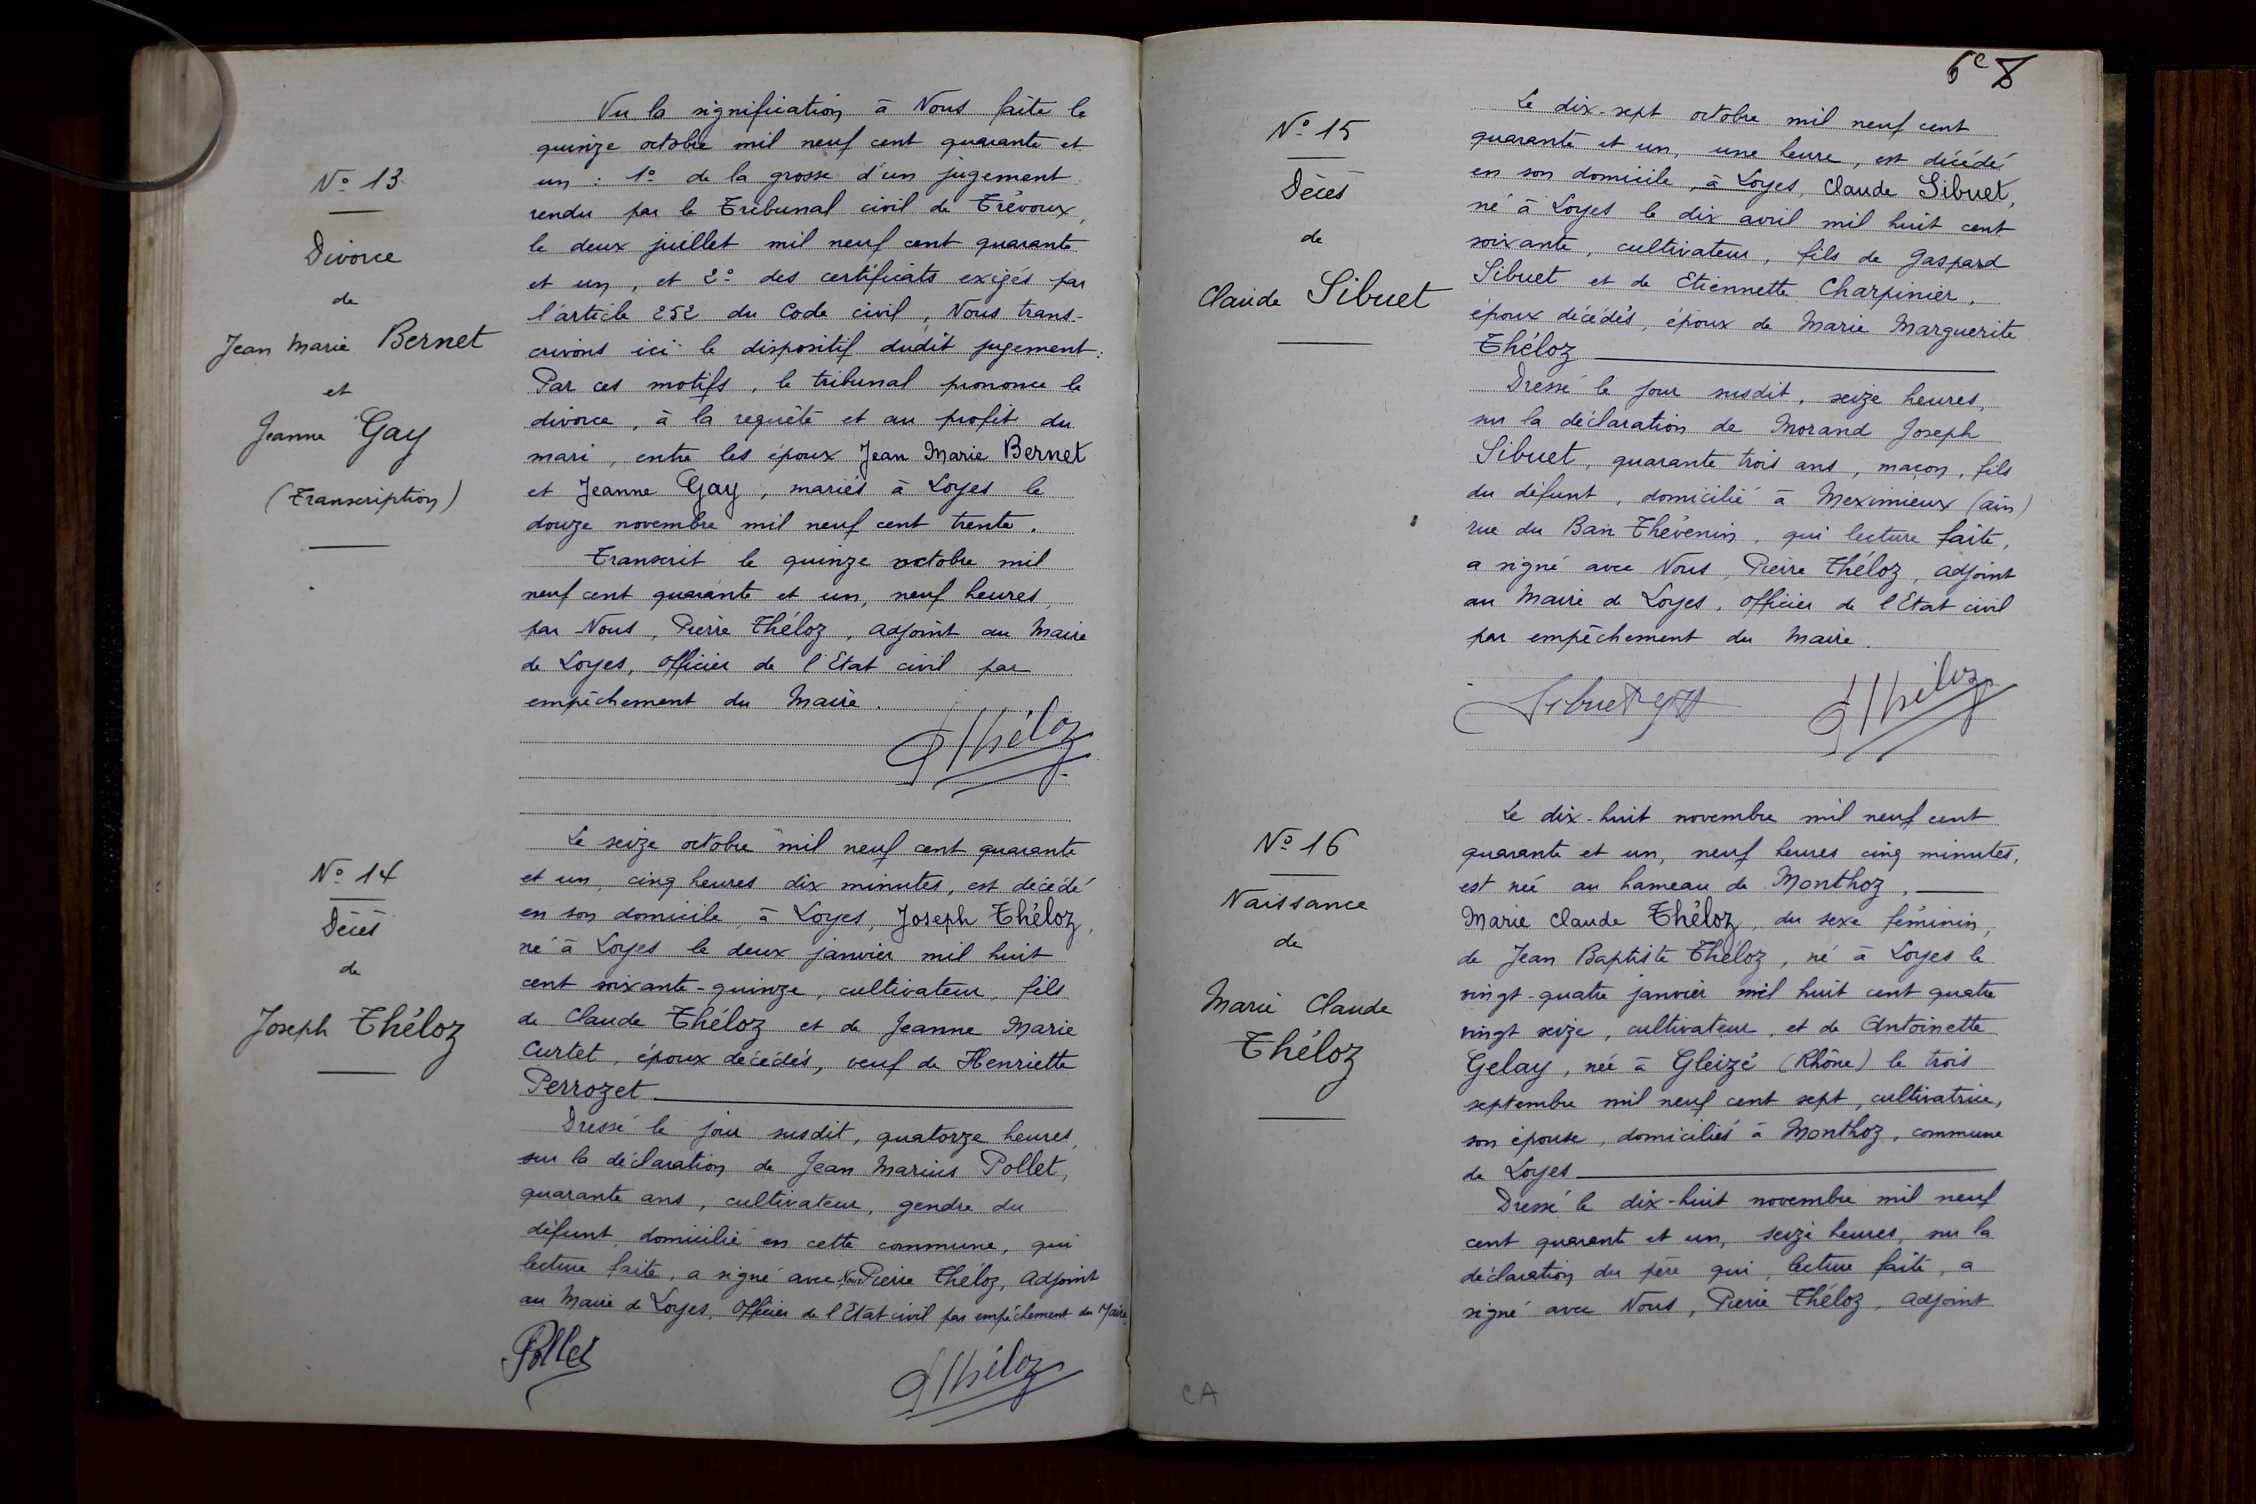 Nº 13
Divorce
de
Jean Marie Bernet
et
Jeanne Gay
(Transcription)
Vu la signification à Nous faite le
quinze octobre mil neuf cent quarante et
un : 1º de la grosse d'un jugement
rendu par le Tribunal civil de Trévoux,
le deux juillet mil neuf cent quarante
et un, et 2º des certificats exigés par
l'article 252 du Code civil, Nous trans-
crivons ici le dispositif dudit jugement :
Par ces motifs, le tribunal prononce le
divorce, à la requête et au profit du
mari, entre les époux Jean Marie Bernet
et Jeanne Gay, mariés à Loyes le
douze novembre mil neuf cent trente.
Transcrit le quinze octobre mil
neuf cent quarante et un, neuf heures,
par Nous, Pierre Théloz, adjoint au Maire
de Loyes, Officier de l'Etat civil par
empêchement du Maire.
PThéloz
Nº 14
Décès
de
Joseph Théloz
Le seize octobre mil neuf cent quarante
et un, cinq heures dix minutes, est décédé
en son domicile à Loyes, Joseph Théloz,
né à Loyes le deux janvier mil huit
cent soixante-quinze, cultivateur, fils
de Claude Théloz et de Jeanne Marie
Curtet, époux décédés, veuf de Henriette
Perrozet
Dressé le jour susdit, quatorze heures,
sur la déclaration de Jean Marius Pollet,
quarante ans, cultivateur, gendre du
défunt, domicilié en cette commune, qui
lecture faite, a signé avec Nous Pierre Théloz, adjoint
au Maire de Loyes, Officier de l'Etat civil par empêchement du Maire.
Pollet
PThéloz
6e 8
Nº 15
Décès
de
Claude Sibuet
Le dix-sept octobre mil neuf cent
quarante et un, une heure, est décédé
en son domicile, à Loyes, Claude Sibuet,
né à Loyes le dix avril mil huit cent
soixante, cultivateur, fils de Gaspard
Sibuet et de Etiennette Charpinier,
époux décédés, époux de Marie Marguerite
Théloz
Dressé le jour susdit, seize heures,
sur la déclaration de Morand Joseph
Sibuet, quarante trois ans, maçon, fils
du défunt, domicilié à Meximieux (ain)
rue du Ban Thévenin, qui lecture faite,
a signé avec Nous, Pierre Théloz, adjoint
au Maire de Loyes, Officier de l'Etat civil
par empêchement du Maire.
Sibuet
PThéloz
Nº 16
Naissance
de
Marie Claude
Théloz
Le dix-huit novembre mil neuf cent
quarante et un, neuf heures cinq minutes,
est née au hameau de Monthoz,
Marie Claude Théloz, du sexe féminin,
de Jean Baptiste Théloz, né à Loyes le
vingt-quatre janvier mil huit cent quatre
vingt seize, cultivateur, et de Antoinette
Gelay, née à Gleizé (Rhône) le trois
septembre mil neuf cent sept, cultivatrice,
son épouse, domiciliés à Monthoz, commune
de Loyes
Dressé le dix-huit novembre mil neuf
cent quarante et un, seize heures, sur la
déclaration du père qui, lecture faite, a
signé avec Nous, Pierre Théloz, adjoint
CA